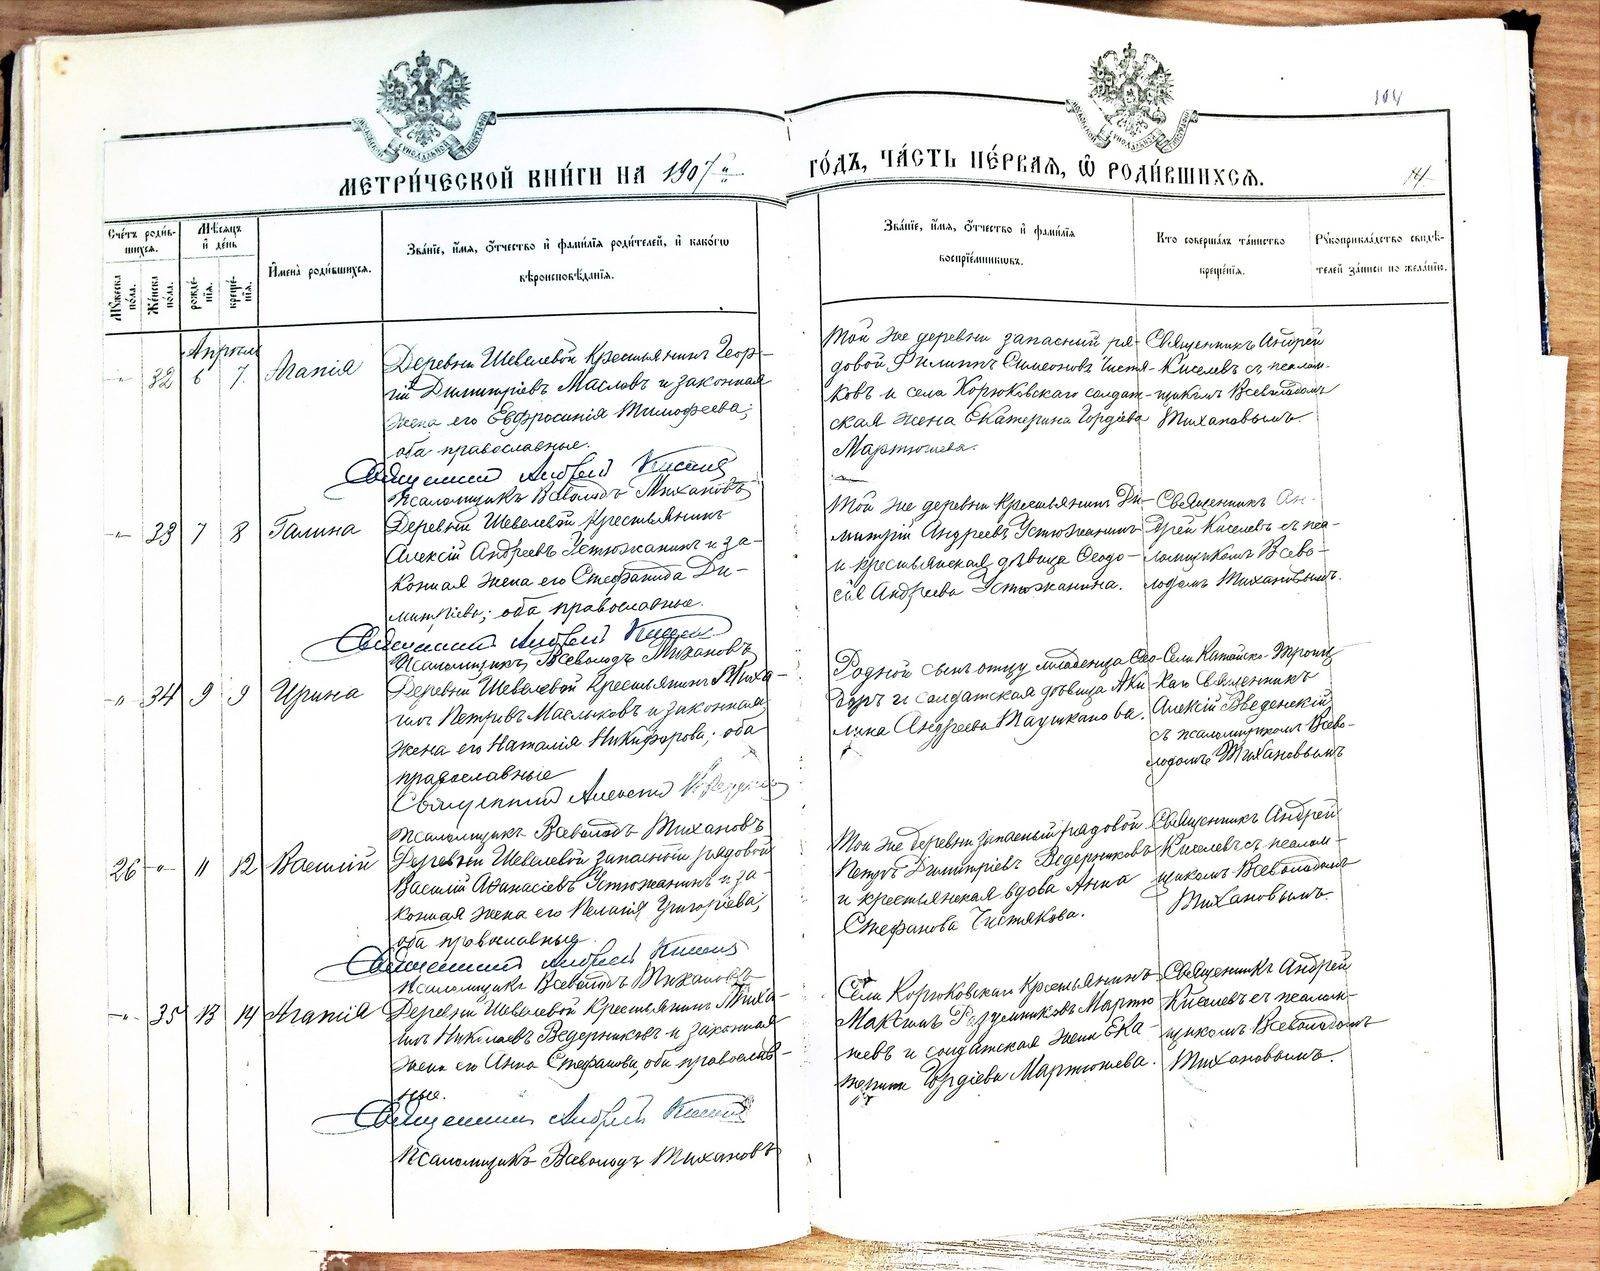 104
МЕТРИ́ЧЕСКОЙ КНИ́ГИ НА 1907й
ГО́ДЪ, ЧА́СТЬ ПЕ́РВАЯ, Ѡ РОДИ́ВШИХСЯ.
Сче́тъ роди́в-
шихся.
Мꙋжеска по́ла.
Же́нска по́ла.
Мѣ́сяцъ и́ де́нь
рожде́-
нія.
креще́-
нія.
И҆мена̀ роди́вшихся.
Зва́ніе, и҆́мя, ѻ҆́тчество и҆ фами́лія роди́телей, и҆ како́гѡ
вѣроисповѣ́данія.
Зва́ніе, и҆́мя, ѻ҆́тчество и҆ фами́лія
воспріе́мниковъ.
Кто̀ соверша́лъ та́инство
креще́нія.
Рꙋкоприкла́дство свидѣ́-
телей за́писи по жела́нію.
Апрѣль
32 6 7 Агапія
Деревни Шевелевой крестьянинъ Геор-
гій Димитріевъ Масловъ и законная
жена его Евфросинія Тимофеева;
оба православные.
Священникъ Андрей Киселевъ
Псаломщикъ Всеволодъ Тихановъ
Той же деревни запасный ря-
довой Филиппъ Симеоновъ Чистя-
ковъ и села Корюковскаго солдат-
ская жена Екатерина Гордіева
Мартюшева.
Священникъ Андрей
Киселевъ съ псалом-
щикомъ Всеволодомъ
Тихановымъ.
33 7 8 Галина
Деревни Шевелевой крестьянинъ
Алексій Андреевъ Устюжанинъ и за-
конная жена его Стефанида Ди-
митріева; оба православные.
Священникъ Андрей Киселевъ
Псаломщикъ Всеволодъ Тихановъ
Той же деревни крестьянинъ Ди-
митрій Андреевъ Устюжанинъ
и крестьянская дѣвица Ѳеодо-
сія Андреева Устюжанина.
Священникъ Ан-
дрей Киселевъ съ пса-
ломщикомъ Всево-
лодомъ Тихановымъ.
34 9 9 Ирина
Деревни Шевелевой крестьянинъ Миха-
илъ Петровъ Маслыковъ и законная
жена его Наталія Никифорова; оба
православные
Священникъ Алексій Введенскій
Псаломщикъ Всеволодъ Тихановъ
Родной сынъ отцу младенца Ѳео-
доръ и солдатская дѣвица Аки-
лина Андреева Таушканова.
Села Катайско-Троиц-
каго Священникъ
Алексій Введенскій
съ псаломщикомъ Всево-
лодомъ Тихановымъ
26 11 12 Василій
Деревни Шевелевой запасный рядовой
Василій Аѳанасіевъ Устюжанинъ и за-
конная жена его Пелагія Григоріева;
оба православные
Священникъ Андрей Киселевъ
Псаломщикъ Всеволодъ Тихановъ
Той же деревни запасный рядовой
Петръ Димитріевъ Ведерниковъ
и крестьянская вдова Анна
Стефанова Чистякова.
Священникъ Андрей
Киселевъ съ псалом-
щикомъ Всеволодомъ
Тихановымъ.
35 13 14 Агапія
Деревни Шевелевой крестьянинъ Миха-
илъ Николаевъ Ведерниковъ и законная
жена его Анна Стефанова, оба православ-
ные.
Священникъ Андрей Киселевъ
Псаломщикъ Всеволодъ Тихановъ
Села Корюковскаго крестьянинъ
Максимъ Мартю-
шевъ и солдатская жена Ека-
терина Гордіева Мартюшева.
Священникъ Андрей
Киселевъ съ псалом-
щикомъ Всеволодомъ
Тихановымъ.